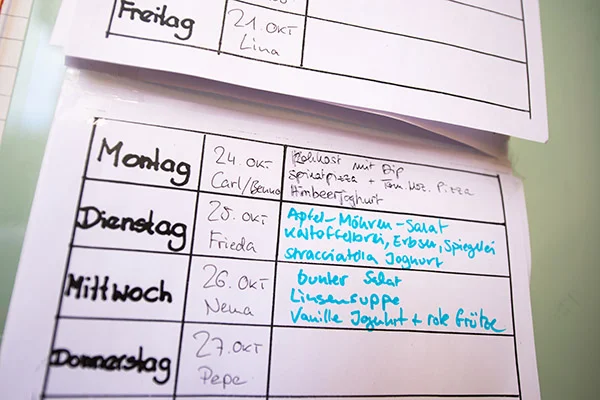 Freitag
21. OKT
Lina
Montag
24. OKT
Carl/Benno
Rohkost mit Dip
Spinatpizza + Tom. Moz. Pizza
Himbeerjoghurt
Dienstag
25. OKT
Frieda
Apfel-Möhren-Salat
Kartoffelbrei, Erbsen, Spiegelei
Stracciatella Joghurt
Mittwoch
26. OKT
Nema
bunter Salat
Linsensuppe
Vanille Joghurt + rote Grütze
Donnerstag
27. OKT
Pepe